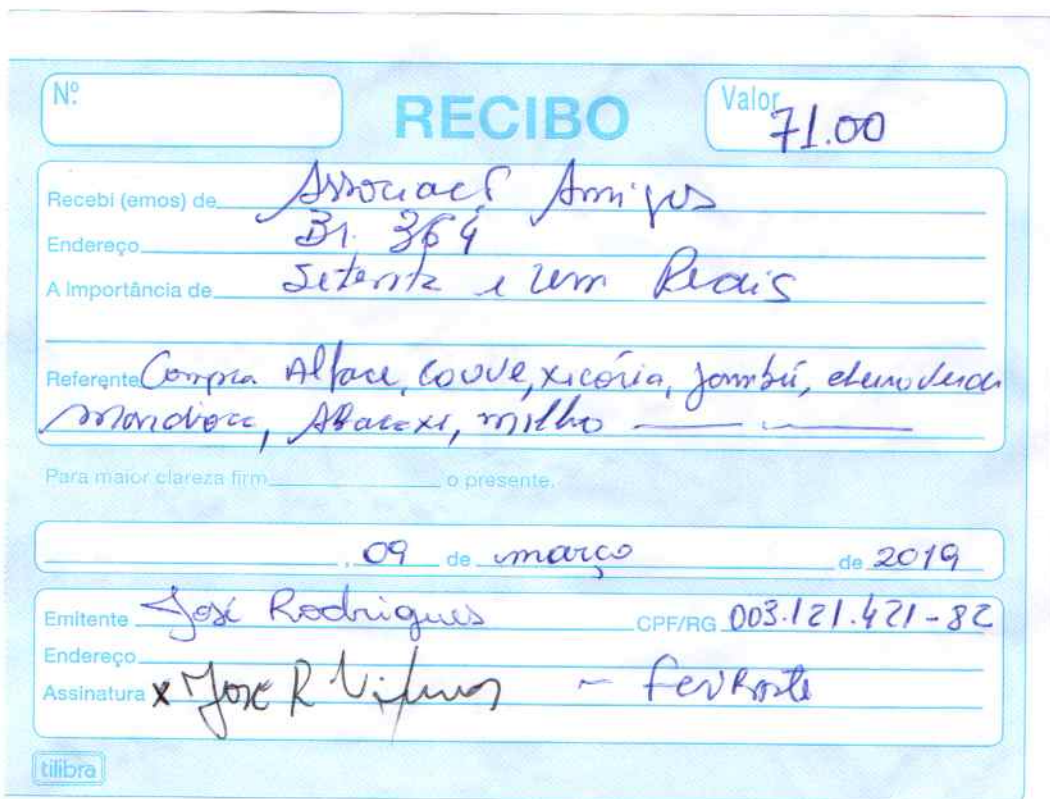 Nº
RECIBO
Valor 71.00
Recebi (emos) de Amigos
Endereço Br. 364
A Importância de Setenta e um Reais
Referente Compra Alface, couve, xicória, jambú, cheiro verde
Mandioca, Abacaxi, milho
Para maior clareza firm o presente.
, 09 de março de 2019
Emitente José Rodrigues CPF/RG 003.121.421-82
Endereço
Assinatura x José R - feirante
tilibra